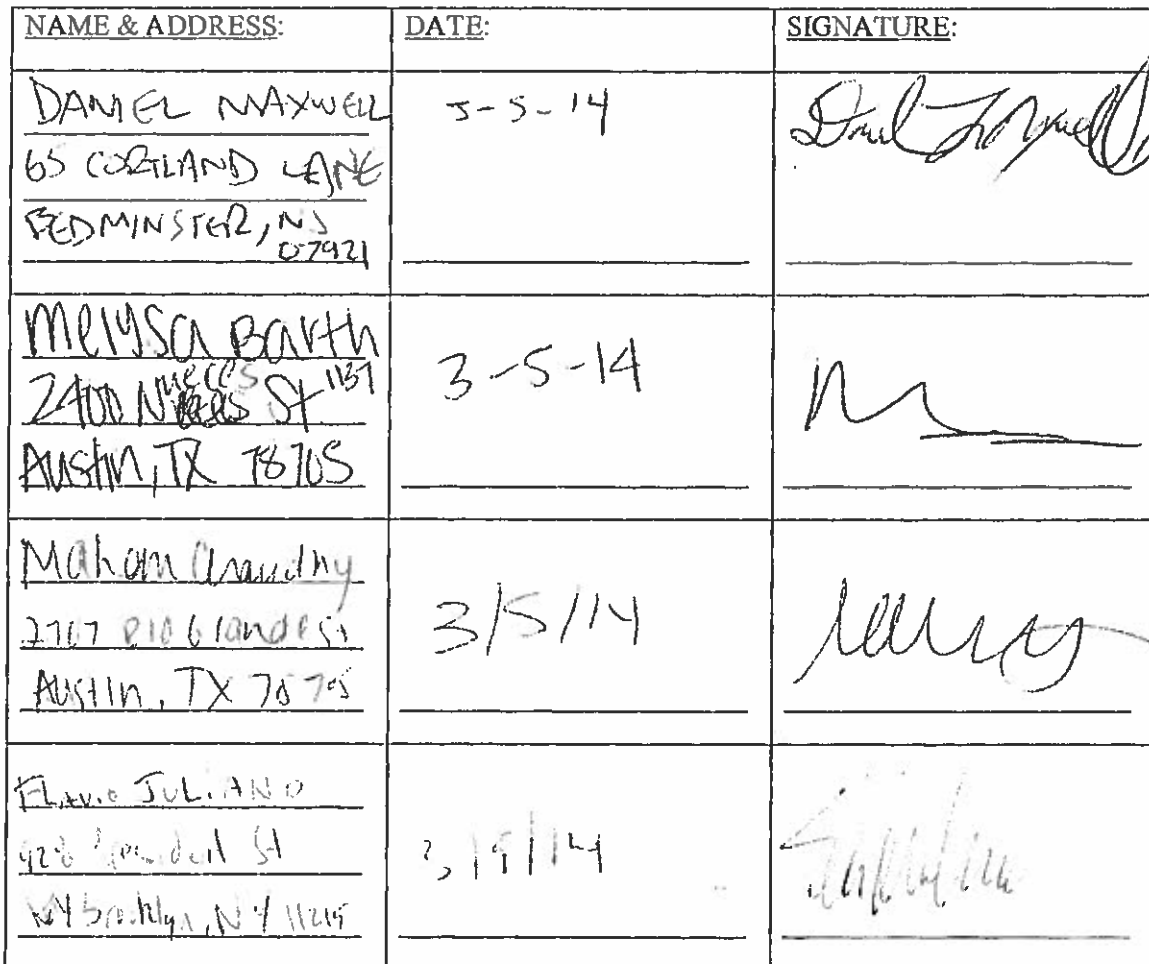 NAME & ADDRESS: DATE: SIGNATURE:
DANIEL MAXWELL 3-5-14
65 CORTLAND LANE
BEDMINSTER, NJ
07921
Melysa Barth
2400 Nueces St 1137 3-5-14
Austin, TX 78705
Maham Chaudhry
2767 Rio Grande St 3/5/14
Austin, TX 78705
Flavio JULIANO
928 President St
NY Brooklyn, NY 11215